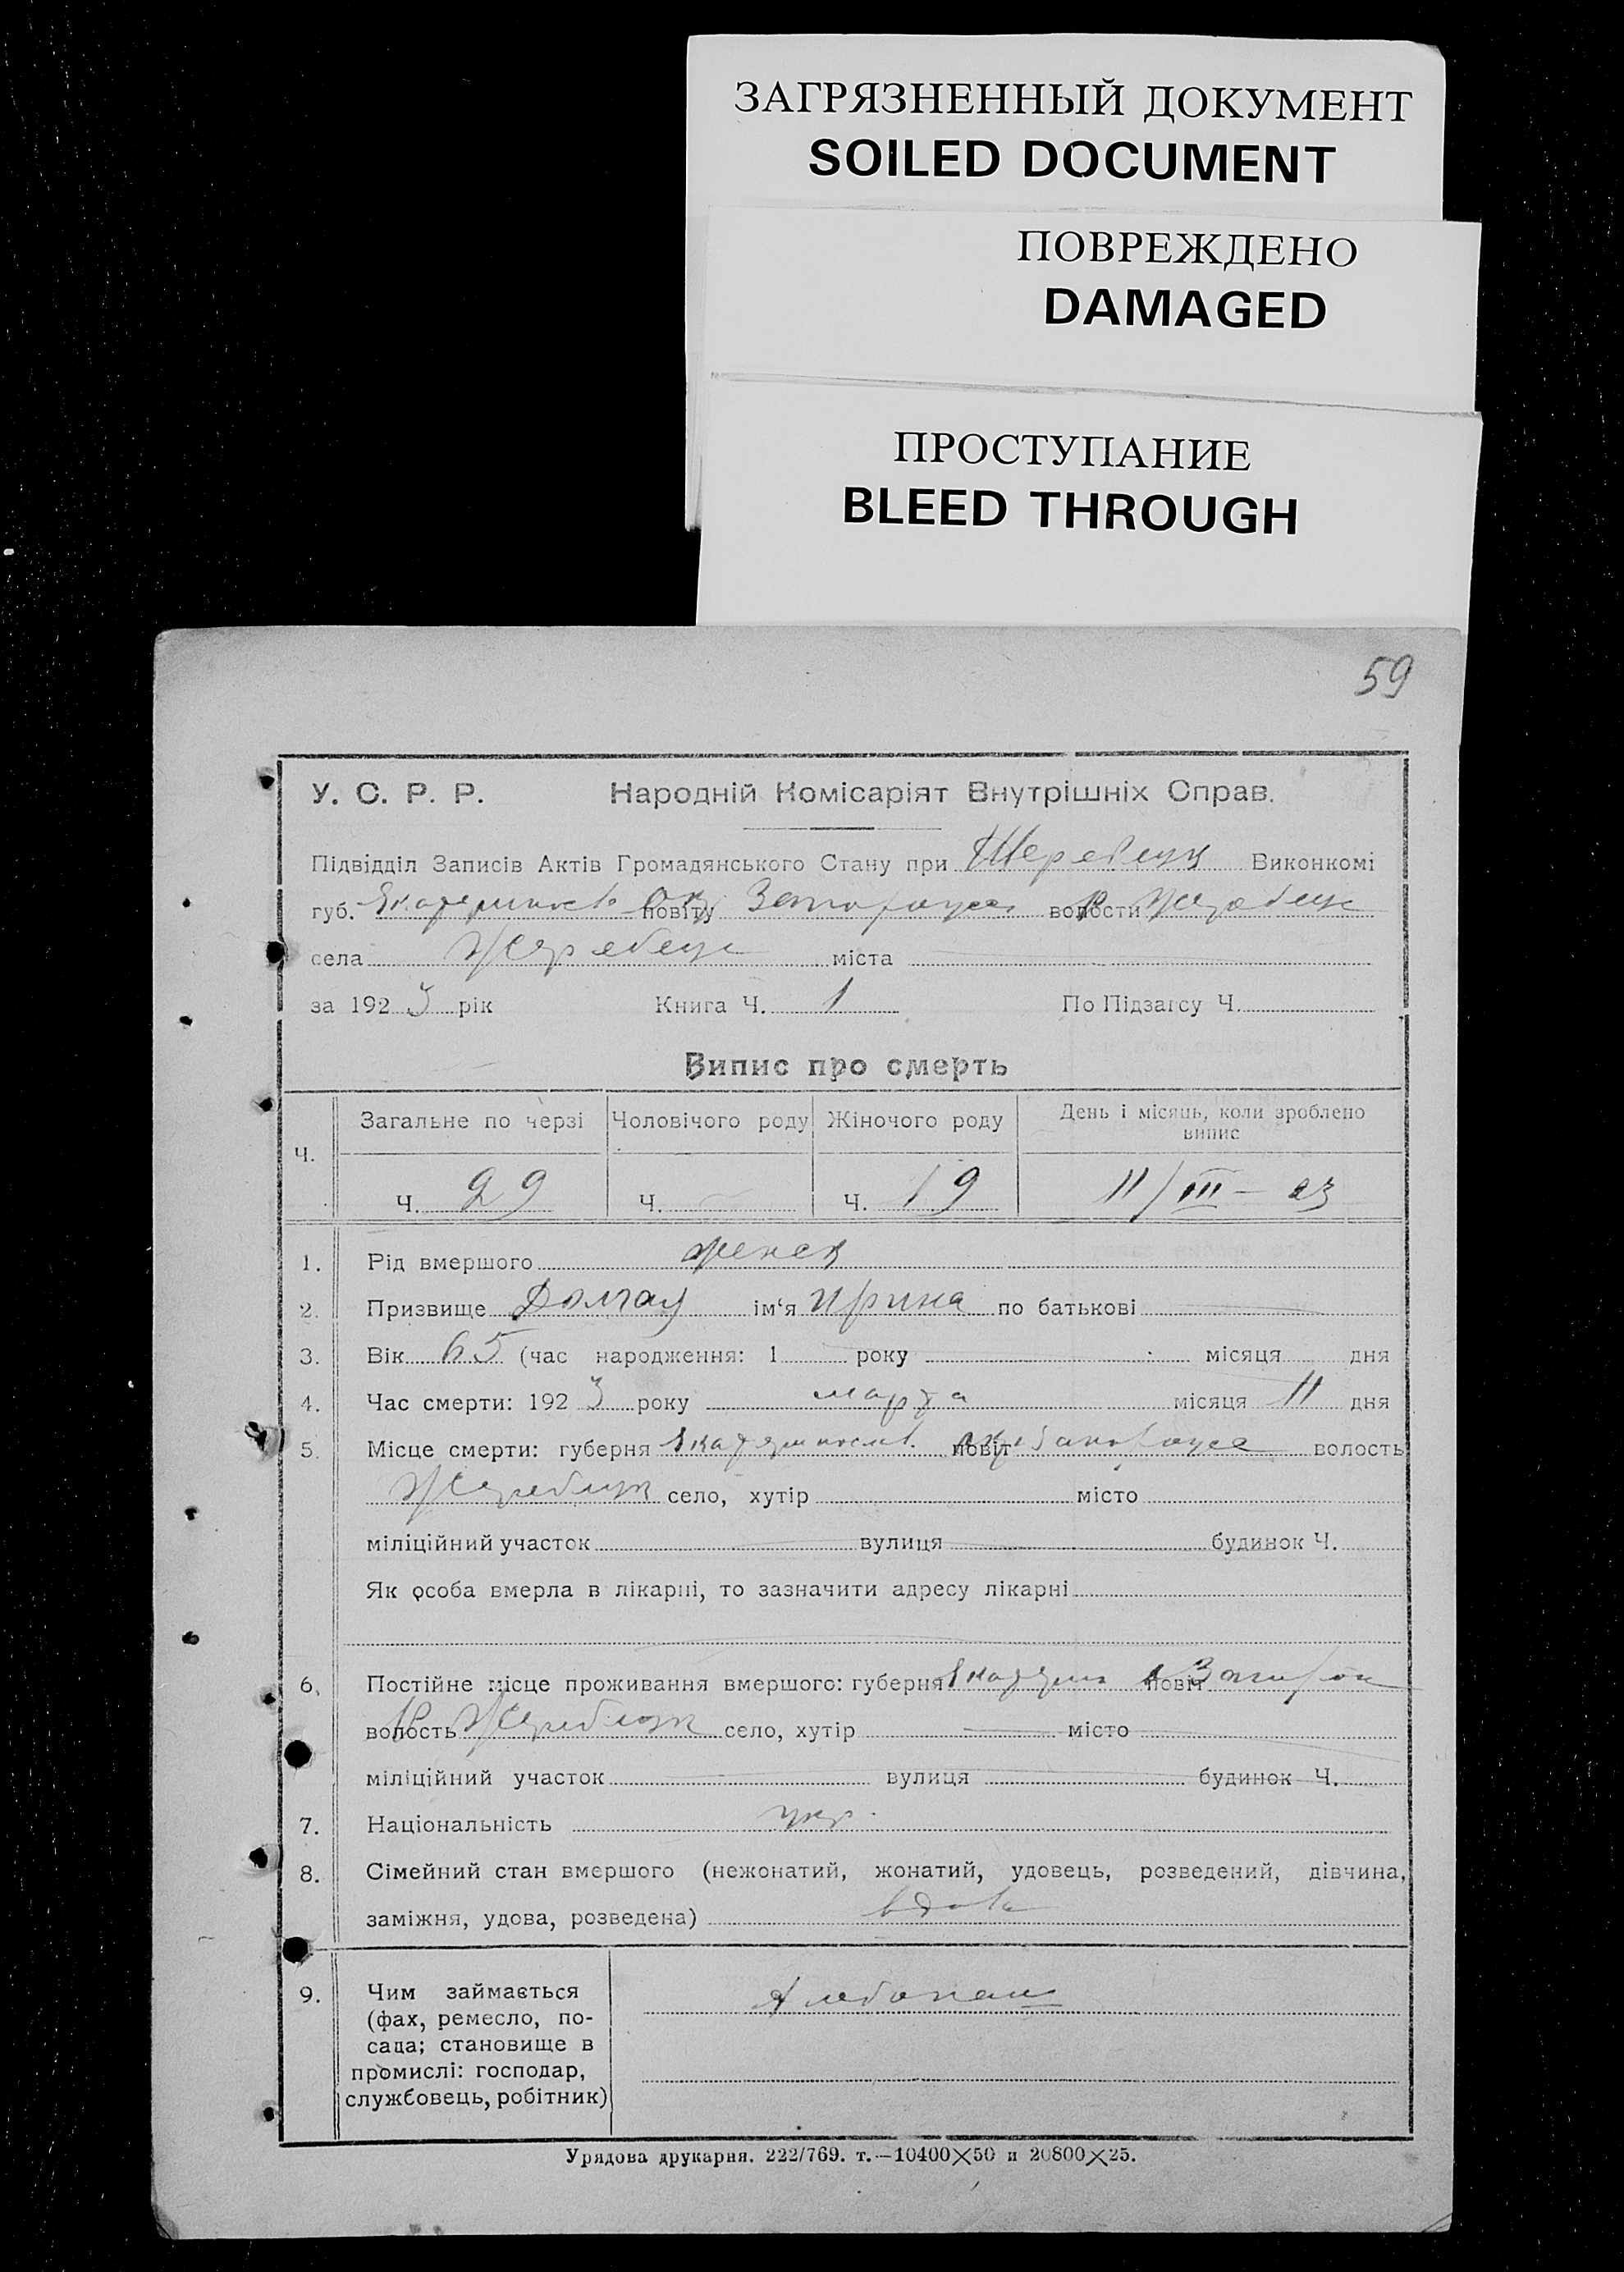 ЗАГРЯЗНЕННЫЙ ДОКУМЕНТ
SOILED DOCUMENT
ПОВРЕЖДЕНО
DAMAGED
ПРОСТУПАНИЕ
BLEED THROUGH
59
У. С. Р. Р. Народній Комісаріят Внутрішніх Справ.
Підвідділ Записів Актів Громадянського Стану при Виконкомі
губ. повіту волости
села Жеребец міста
за 1923 рік Книга Ч. 1 По Підзагсу Ч.
Випис про смерть
Ч. Загальне по черзі Чоловічого роду Жіночого роду День і місяць, коли зроблено
випис
Ч. 29 Ч. Ч. 19 11/III – 23
1. Рід вмершого женск
2. Призвище Долгая ім‘я Ирина по батькові
3. Вік 65 (час народження: 1 року місяця дня
4. Час смерти: 1923 року марта місяця 11 дня
5. Місце смерти: губерня повіт волость
село, хутір місто
міліційний участок вулиця будинок Ч.
Як особа вмерла в лікарні, то зазначити адресу лікарні
6. Постійне місце проживання вмершого: губерня повіт
волость село, хутір місто
міліційний участок вулиця будинок Ч.
7. Національність укр.
8. Сімейний стан вмершого (нежонатий, жонатий, удовець, розведений, дівчина,
заміжня, удова, розведена) вдова
9. Чим займається
(фах, ремесло, по-
сада; становище в
промислі: господар,
службовець, робітник)
Хлебопаш
Урядова друкарня. 222/769. т.—10400×50 и 20800×25.